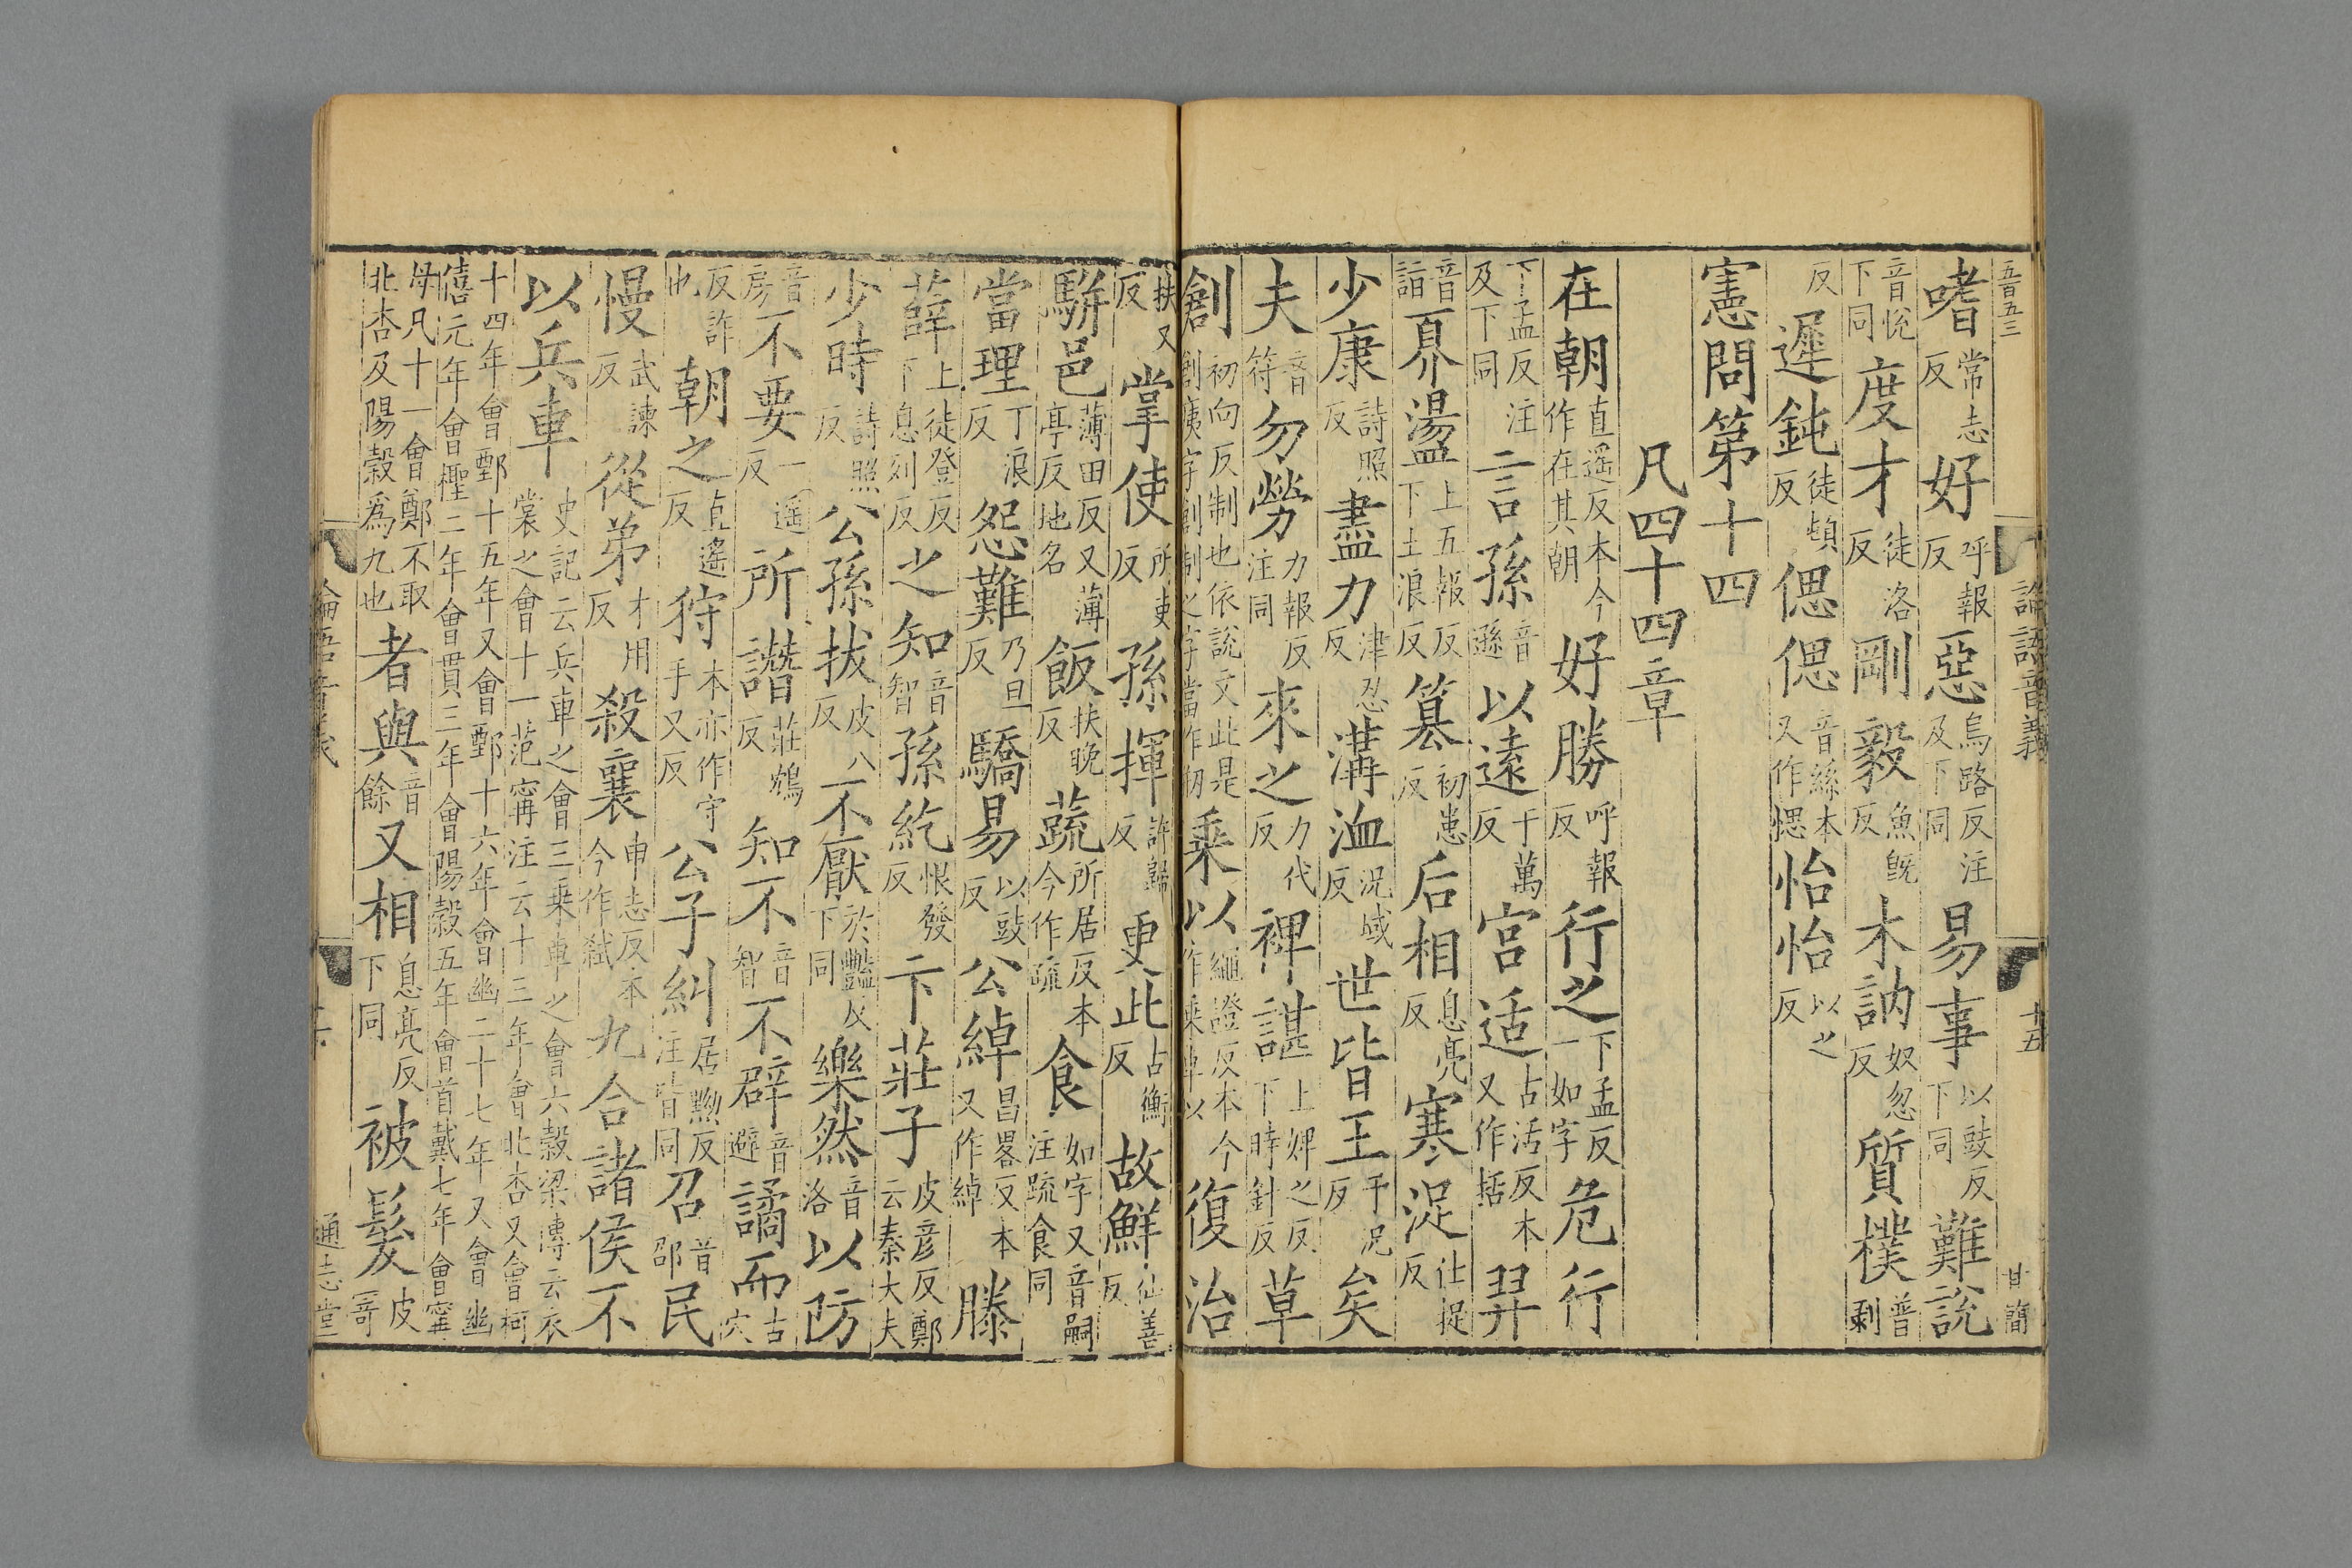 五百五三 論語音義 十五 甘簡
嗜常志反好呼報反惡烏路反注及下同易事以豉反下同難說
音悅下同度才徒洛反剛毅魚旣反木訥奴忽反質樸普剥
反遲鈍徒頓反偲偲音絲本又作愢怡怡以之反
憲問第十四
凡四十四章
在朝直遥反本今作在其朝好勝呼報反行之下孟反一如字危行
下孟反注及下同言孫音遜以遠于萬反宫适古活反本又作括羿
音詣奡盪上五報反下土浪反簒初患反后相息亮反寒浞仕捉反
少康詩照反盡力津忍反溝洫況域反世皆王于況反矣
夫音符勿勞力報反注同來之力代反裨諶上婢之反下時針反草
創初向反制也依說文此是創痍字創制之字當作刱乗以繩證反本今作乗車以復治
扶又反掌使所吏反孫揮許歸反更此古衡反故鮮仙善反
駢邑薄田反又薄亭反地名飯扶晚反蔬所居反本今作疏食如字又音嗣注疏食同
當理丁浪反怨難乃旦反驕易以豉反公綽昌畧反本又作繛滕
薛上徒登反下息列反之知音智孫紇恨發反卞莊子皮彦反鄭云秦大夫
少時詩照反公孫拔皮八反不厭於豔反下同樂然音洛以防
音房不要一遥反所譖莊鴆反知不音智不辟音避譎而古穴
反詐也朝之直遥反狩本亦作守手又反公子糾居黝反注皆同召音邵民
慢武諫反從弟才用反殺襄申志反本今作弑九合諸侯不
以兵車史記云兵車之會三乗車之會六榖梁傳云衣裳之會十一范甯注云十三年會北杏又會柯
十四年會鄄十五年又會鄄十六年會幽二十七年又會幽僖元年會檉二年會貫三年會陽穀五年會首戴七年會甯
母凡十一會鄭不取北杏及陽榖爲九也者與音餘又相息亮反下同被髪皮寄
論語音義 通志堂